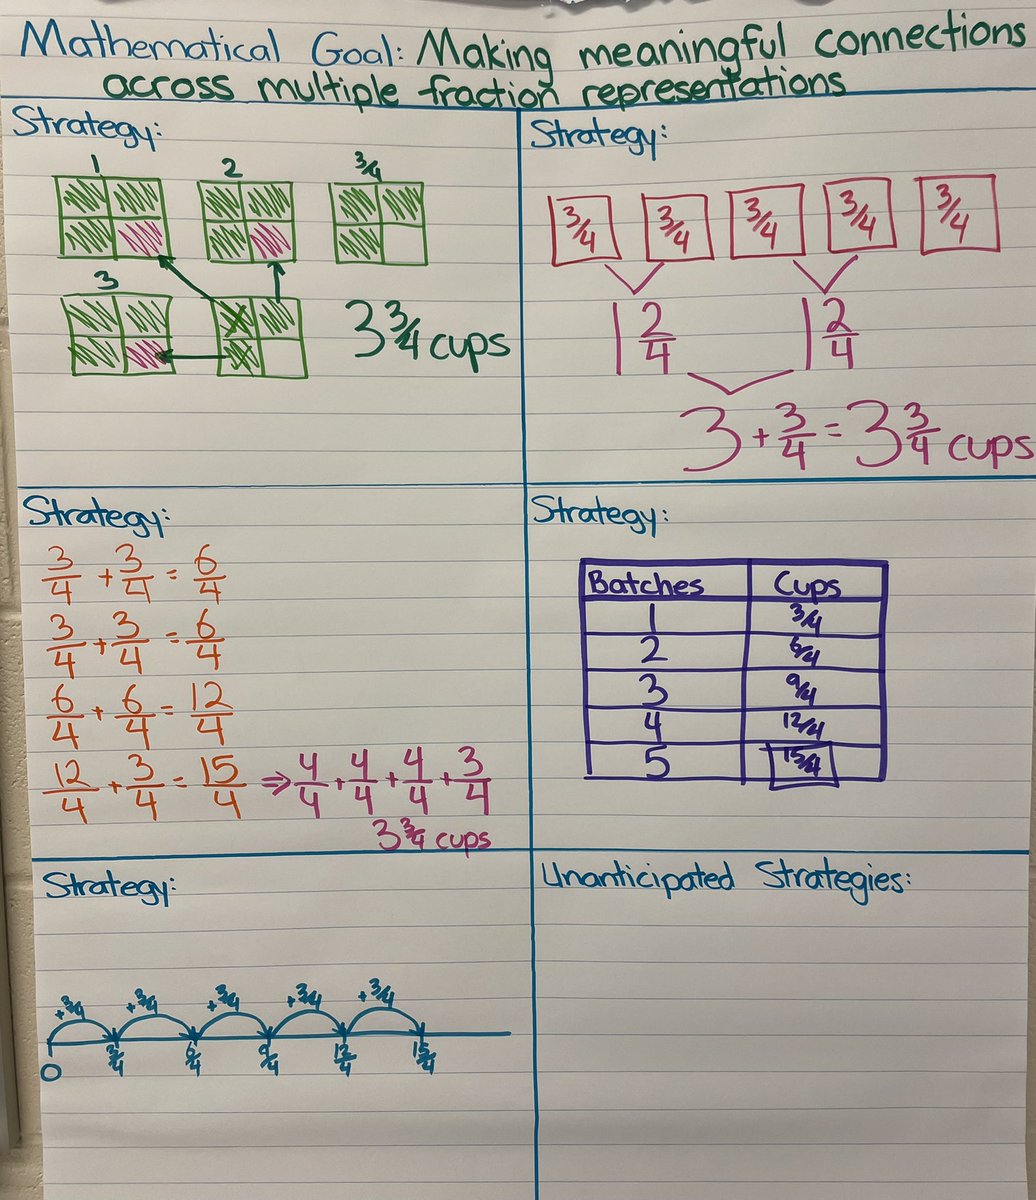 Mathematical Goal: Making meaningful connections
across multiple fraction representations
Strategy:
1 2 3/4
3
3 3/4 cups
Strategy:
3/4 3/4 3/4 3/4 3/4
1 2/4 1 2/4
3 + 3/4 = 3 3/4 cups
Strategy:
3/4 + 3/4 = 6/4
3/4 + 3/4 = 6/4
6/4 + 6/4 = 12/4
12/4 + 3/4 = 15/4 ⇒ 4/4 + 4/4 + 4/4 + 3/4
3 3/4 cups
Strategy:
Batches Cups
1 3/4
2 6/4
3 9/4
4 12/4
5 15/4
Strategy:
+3/4 +3/4 +3/4 +3/4 +3/4
0 3/4 6/4 9/4 12/4 15/4
Unanticipated Strategies: